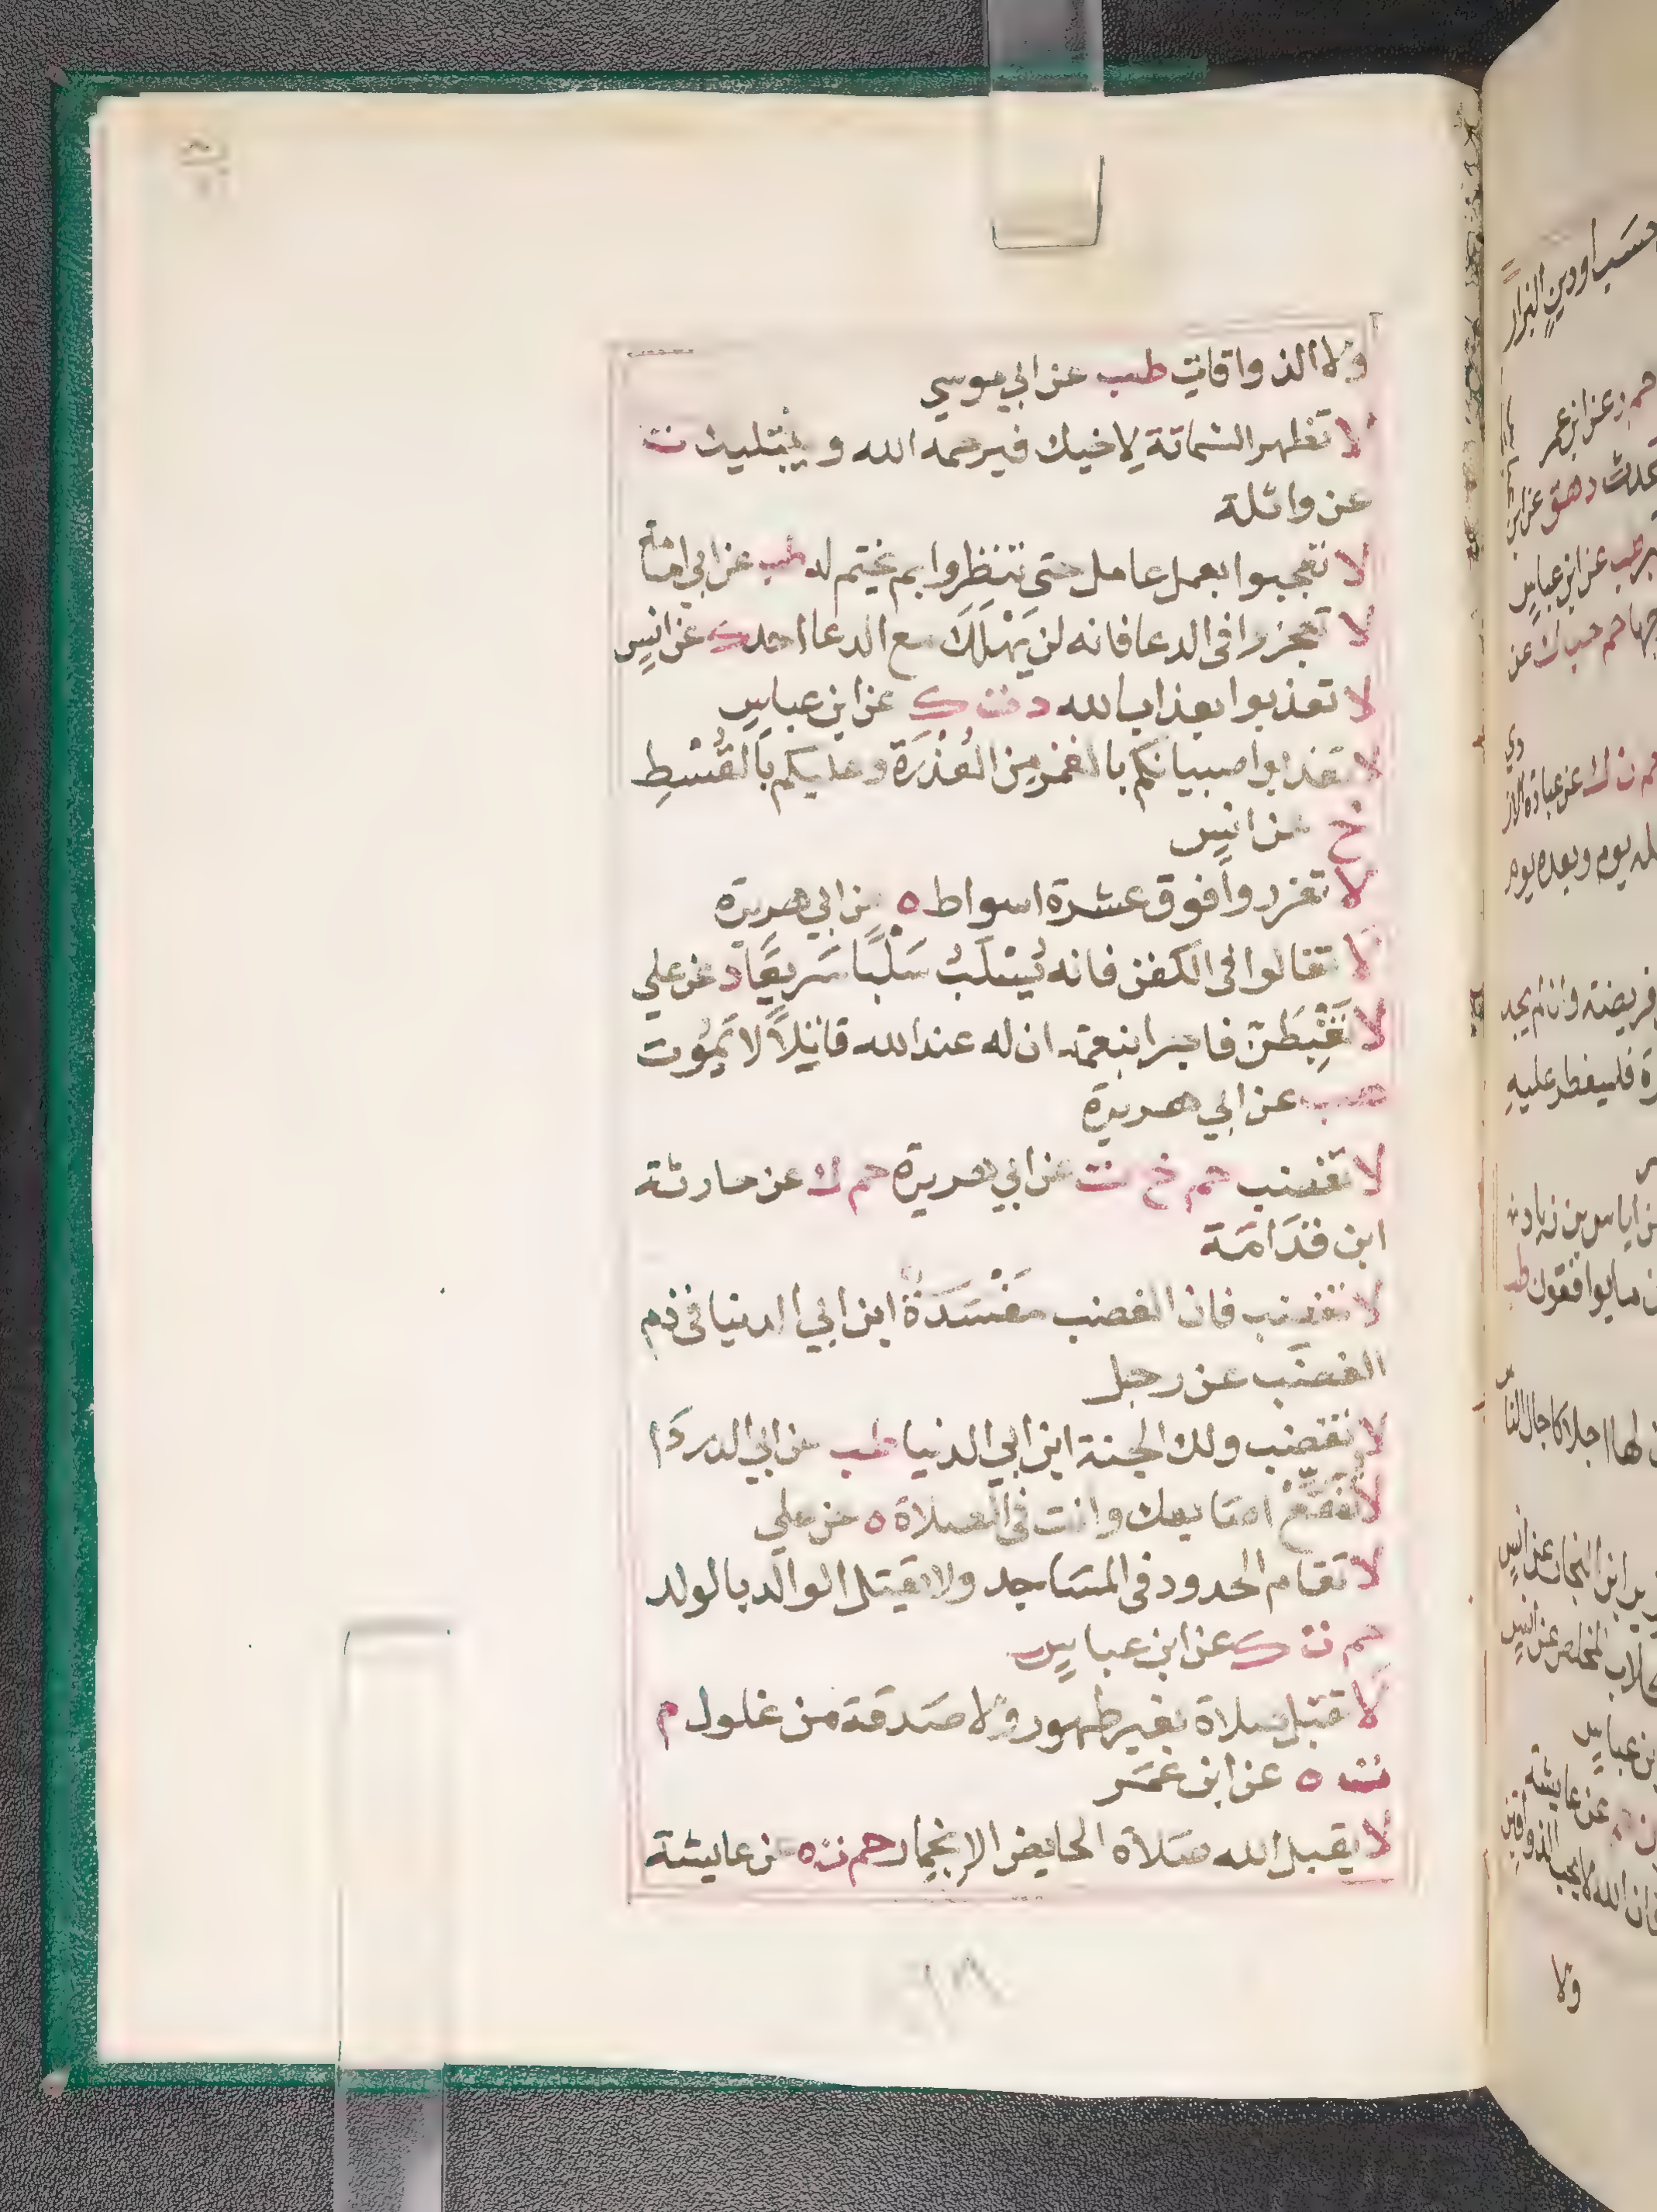 ولا الذواقات طب عن ابي موسي
لا تظهر الشماتة لاخيك فيرحمه الله ويبتليك ت
عن واثلة
لا تعجبوا بعمل عامل حتى تنظروا بم يختم له طب عن ابي امامة
لا تعجزوا فى الدعا فانه لن يَهْلِكَ مع الدعا احد ك عن انسٍ
لا تعذبوا بعذاب الله د ت ك عن ابن عباسٍ
لا تعذبوا صبيانكم بالغمز من العُذْرَة وعليكم بالقُسْطِ
خ عن انسٍ
لا تعزروا فوق عشرة اسواط ه عن ابي هريرة
لا تغالوا فى الكفن فانه يُسْلَبُ سَلْبًا سَريعًا د عن علي
لا تَغْبِطَنّ فاجرا بنعمة ان له عند الله قاتِلاً لا يَمُوت
هب عن ابي هريرة
لا تغضب حم خ ت عن ابي هريرة حم ك عن جارثة
ابن قدَامَة
لا تغضب فان الغضب مَفْسَدَةٌ ابن ابي الدنيا فى ذم
الغضب عن رجل
لا تغضب ولك الجنة ابن ابي الدنيا طب عن ابي الدردَا
لا تُفَقِّعْ اصابعك وانت فى الصلاة ه عن علي
لا تقام الحدود فى المسَاجد ولا يقتل الوالد بالولد
حم ت ك عن ابن عباسٍ
لا تقبل صلاة بغير طهور ولا صَدقَة من غلول م
ت ه عن ابن عُمَر
لا يقبل الله صَلاة الحايض الا بخمار حم ت ه عن عايشة